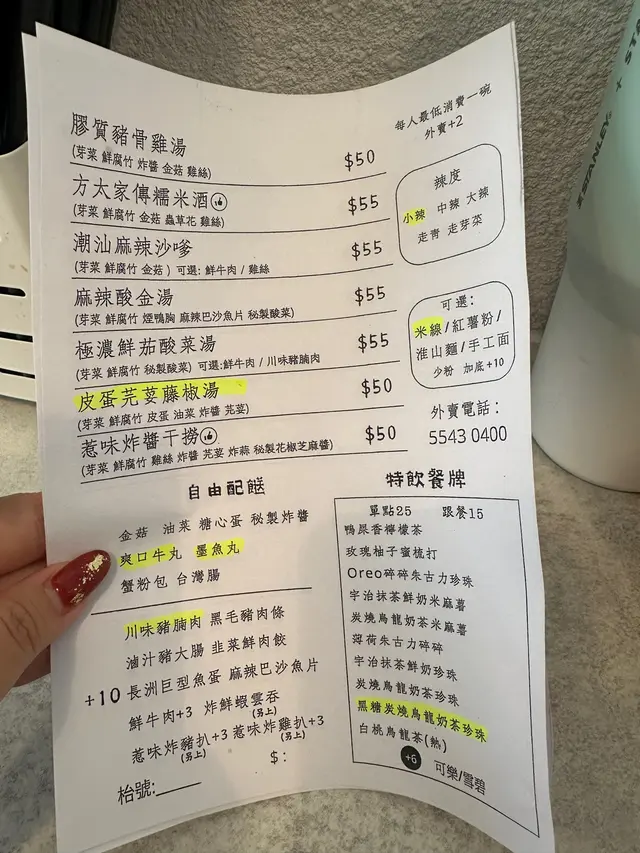 每人最低消費一碗
外賣+2
膠質豬骨雞湯 $50
(芽菜 鮮腐竹 炸醬 金菇 雞絲)
方太家傳糯米酒 $55
(芽菜 鮮腐竹 金菇 蟲草花 雞絲)
潮汕麻辣沙嗲 $55
(芽菜 鮮腐竹 金菇) 可選: 鮮牛肉 / 雞絲
麻辣酸金湯 $55
(芽菜 鮮腐竹 煙鴨胸 麻辣巴沙魚片 秘製酸菜)
極濃鮮茄酸菜湯 $55
(芽菜 鮮腐竹 秘製酸菜) 可選:鮮牛肉 / 川味豬腩肉
皮蛋芫荽藤椒湯 $50
(芽菜 鮮腐竹 皮蛋 油菜 炸醬 芫荽)
惹味炸醬干撈 $50
(芽菜 鮮腐竹 雞絲 炸醬 芫荽 炸蒜 秘製花椒芝麻醬)
辣度
小辣 中辣 大辣
走青 走芽菜
可選:
米線/紅薯粉/
淮山麵/手工面
少粉 加底+10
外賣電話:
5543 0400
自由配餸
金菇 油菜 糖心蛋 秘製炸醬
爽口牛丸 墨魚丸
蟹粉包 台灣腸
川味豬腩肉 黑毛豬肉條
滷汁豬大腸 韮菜鮮肉餃
+10 長洲巨型魚蛋 麻辣巴沙魚片
鮮牛肉+3 炸鮮蝦雲吞
(另上)
惹味炸豬扒+3 惹味炸雞扒+3
(另上) (另上)
$:
枱號:
特飲餐牌
單點25 跟餐15
鴨屎香檸檬茶
玫瑰柚子蜜梳打
Oreo碎碎朱古力珍珠
宇治抹茶鮮奶米麻薯
炭燒烏龍奶茶米麻薯
薄荷朱古力碎碎
宇治抹茶鮮奶珍珠
炭燒烏龍奶茶珍珠
黑糖炭燒烏龍奶茶珍珠
白桃烏龍茶(熱)
+6 可樂/雪碧
STANLEY
X